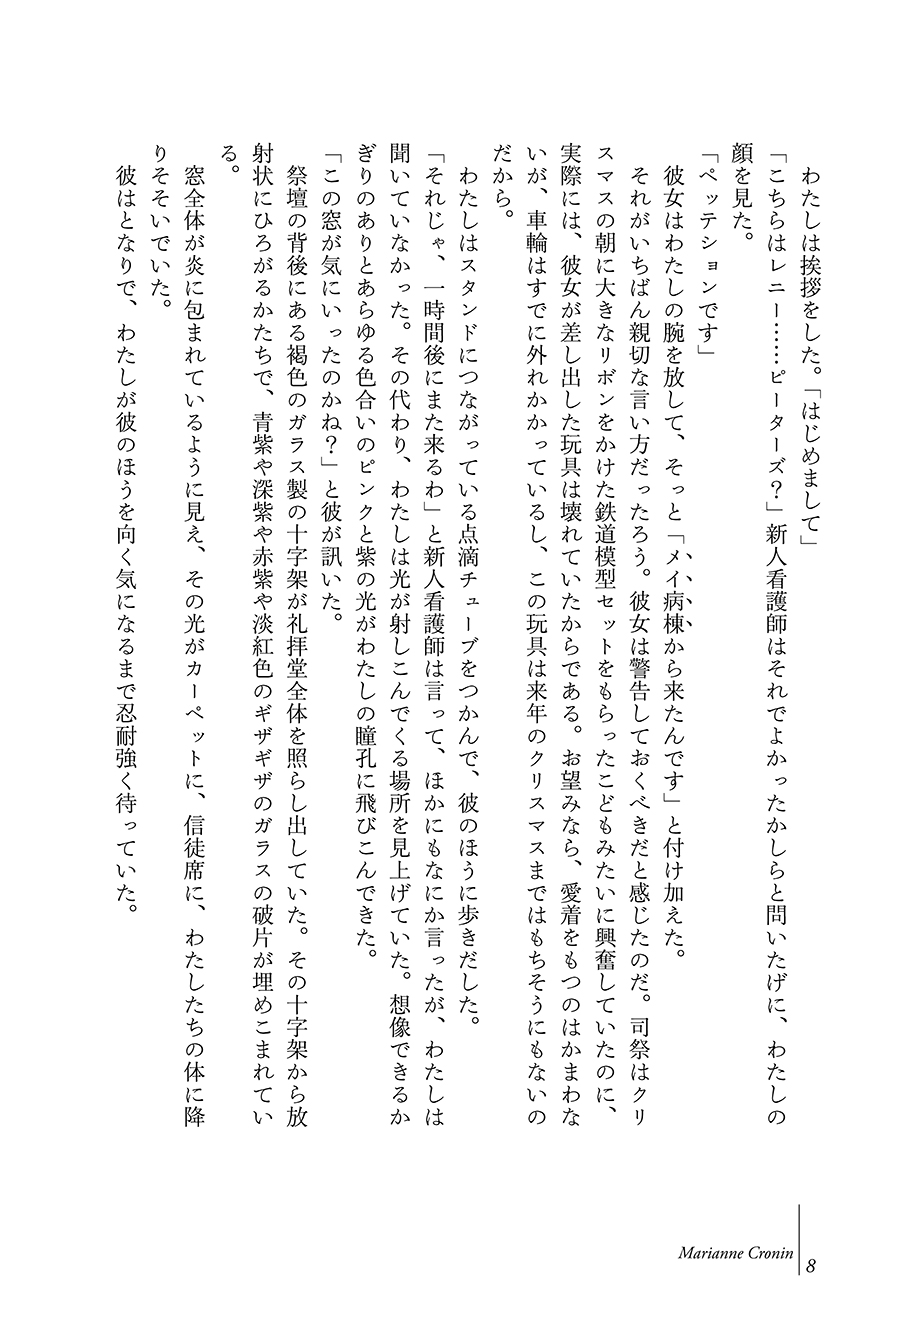 わたしは挨拶をした。「はじめまして」
「こちらはレニー……ピーターズ？」新人看護師はそれでよかったかしらと問いたげに、わたしの
顔を見た。
「ペッテションです」
彼女はわたしの腕を放して、そっと「メイ病棟から来たんです」と付け加えた。
それがいちばん親切な言い方だったろう。彼女は警告しておくべきだと感じたのだ。司祭はクリ
スマスの朝に大きなリボンをかけた鉄道模型セットをもらったこどもみたいに興奮していたのに、
実際には、彼女が差し出した玩具は壊れていたからである。お望みなら、愛着をもつのはかまわな
いが、車輪はすでに外れかかっているし、この玩具は来年のクリスマスまではもちそうにもないの
だから。
わたしはスタンドにつながっている点滴チューブをつかんで、彼のほうに歩きだした。
「それじゃ、一時間後にまた来るわ」と新人看護師は言って、ほかにもなにか言ったが、わたしは
聞いていなかった。その代わり、わたしは光が射しこんでくる場所を見上げていた。想像できるか
ぎりのありとあらゆる色合いのピンクと紫の光がわたしの瞳孔に飛びこんできた。
「この窓が気にいったのかね？」と彼が訊いた。
祭壇の背後にある褐色のガラス製の十字架が礼拝堂全体を照らし出していた。その十字架から放
射状にひろがるかたちで、青紫や深紫や赤紫や淡紅色のギザギザのガラスの破片が埋めこまれてい
る。
窓全体が炎に包まれているように見え、その光がカーペットに、信徒席に、わたしたちの体に降
りそそいでいた。
彼はとなりで、わたしが彼のほうを向く気になるまで忍耐強く待っていた。
Marianne Cronin
8